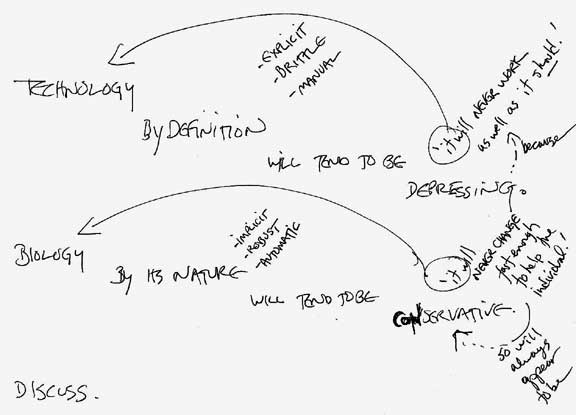 - EXPLICIT
- BRITTLE
- MANUAL
TECHNOLOGY
BY DEFINITION
WILL TEND TO BE
DEPRESSING.
'it will NEVER WORK
as well as it should!'
because
- IMPLICIT
- ROBUST
- AUTOMATIC
BIOLOGY
BY ITS NATURE
WILL TEND TO BE
CONSERVATIVE.
'it will NEVER CHANGE
fast enough
to help the
individual!'
so will
always
appear
to be
DISCUSS.